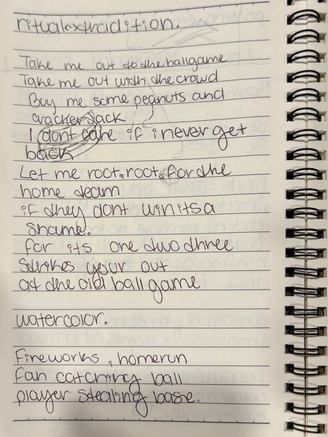 ritual+tradition.
Take me out to the ballgame
Take me out with the crowd
Buy me some peanuts and
crackerjack
I dont care if i never get
back
Let me root, root, for the
home team
if they dont win its a
shame.
for its one two three
Strikes your out
at the old ball game
watercolor.
Fireworks, homerun
fan catching ball
player stealing base.